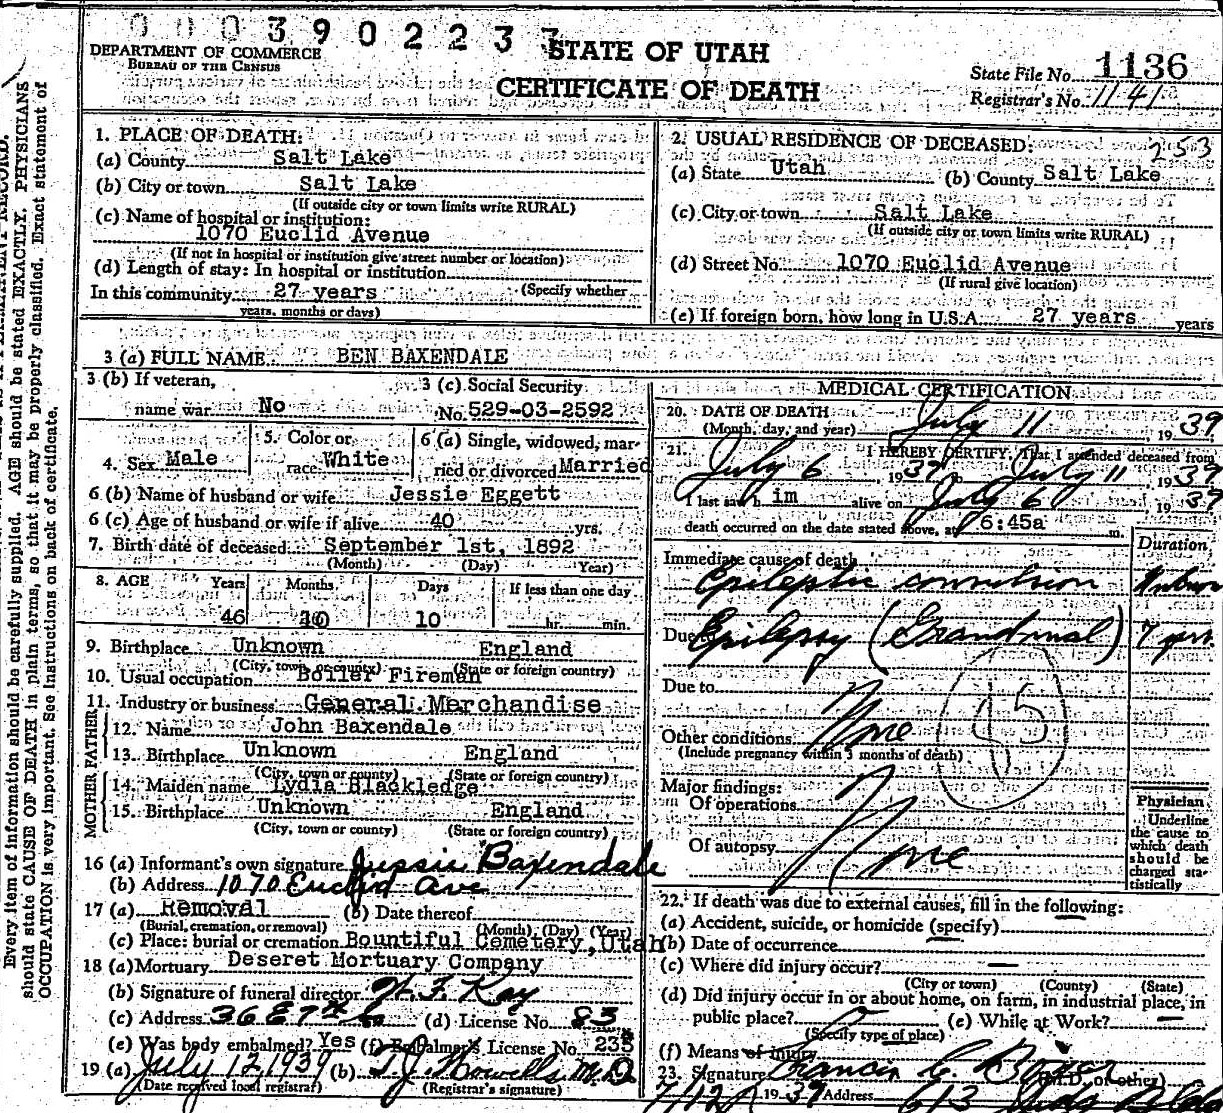 0003902237
DEPARTMENT OF COMMERCE
BUREAU OF THE CENSUS
STATE OF UTAH
CERTIFICATE OF DEATH
State File No. 1136
Registrar's No. 1141
1. PLACE OF DEATH:
(a) County Salt Lake
(b) City or town Salt Lake
(If outside city or town limits write RURAL)
(c) Name of hospital or institution:
1070 Euclid Avenue
(If not in hospital or institution give street number or location)
(d) Length of stay: In hospital or institution
In this community 27 years (Specify whether
years, months or days)
2. USUAL RESIDENCE OF DECEASED: 253
(a) State Utah (b) County Salt Lake
(c) City or town Salt Lake
(If outside city or town limits write RURAL)
(d) Street No. 1070 Euclid Avenue
(If rural give location)
(e) If foreign born, how long in U.S.A. 27 years years
3 (a) FULL NAME BEN BAXENDALE
3 (b) If veteran,
name war No
3 (c) Social Security
No. 529-03-2592
4. Sex Male
5. Color or
race White
6 (a) Single, widowed, mar-
ried or divorced Married
6 (b) Name of husband or wife Jessie Eggett
6 (c) Age of husband or wife if alive 40 yrs.
7. Birth date of deceased September 1st, 1892
(Month) (Day) Year)
8. AGE Years Months Days If less than one day
46 10 10 hr. min.
9. Birthplace Unknown England
(City, town, or county) (State or foreign country)
10. Usual occupation Boiler Fireman
11. Industry or business General Merchandise
FATHER
12. Name John Baxendale
13. Birthplace Unknown England
(City, town or county) (State or foreign country)
MOTHER
14. Maiden name Lydia Blackledge
15. Birthplace Unknown England
(City, town or county) (State or foreign country)
16 (a) Informant's own signature Jessie Baxendale
(b) Address 1070 Euclid Ave
17 (a) Removal (b) Date thereof
(Burial, cremation, or removal) (Month) (Day) (Year)
(c) Place: burial or cremation Bountiful Cemetery, Utah
18 (a) Mortuary Deseret Mortuary Company
(b) Signature of funeral director W. F. Kay
(c) Address 36 E 7th So (d) License No. 83
(e) Was body embalmed? Yes (f) Embalmer's License No. 233
19 (a) July 12, 1939 (b) T. J. Howells M.D.
(Date received local registrar) (Registrar's signature)
MEDICAL CERTIFICATION
20. DATE OF DEATH
(Month, day, and year) July 11, 1939
21. I HEREBY CERTIFY, That I attended deceased from
July 6, 1939 to July 11 1939
I last saw h im alive on July 6 1939
death occurred on the date stated above, at 6:45a m.
Duration
Immediate cause of death
Epileptic convulsion
Due to Epilepsy (Grand mal) 7 yrs.
Due to
85
Other conditions None
(Include pregnancy within 3 months of death)
Major findings:
Of operations
Of autopsy None
Physician
Underline
the cause to
which death
should be
charged sta-
tistically
22. If death was due to external causes, fill in the following:
(a) Accident, suicide, or homicide (specify)
(b) Date of occurrence
(c) Where did injury occur? —
(City or town) (County) (State)
(d) Did injury occur in or about home, on farm, in industrial place, in
public place? (e) While at Work? —
(Specify type of place)
(f) Means of injury
23. Signature Francis C. (M.D. or other)
7/12 1939 Address 613
Every item of information should be carefully supplied. AGE should be stated EXACTLY. PHYSICIANS
should state CAUSE OF DEATH in plain terms, so that it may be properly classified. Exact statement of
OCCUPATION is very important. See instructions on back of certificate.